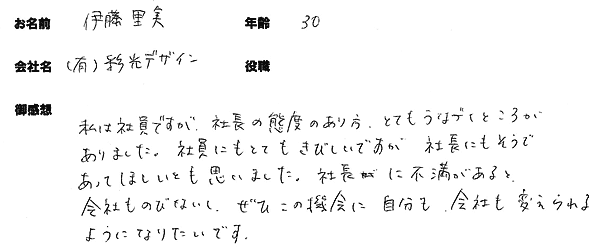 お名前 伊藤里実 年齢 30
会社名 (有)彩光デザイン 役職
御感想
私は社員ですが、社長の態度のあり方、とてもうなづくところが
ありました。社員にもとてもきびしいですが 社長にもそうで
あってほしいとも思いました。社長に不満があると、
会社ものびないし、ぜひこの機会に自分も、会社も変えられる
ようになりたいです。